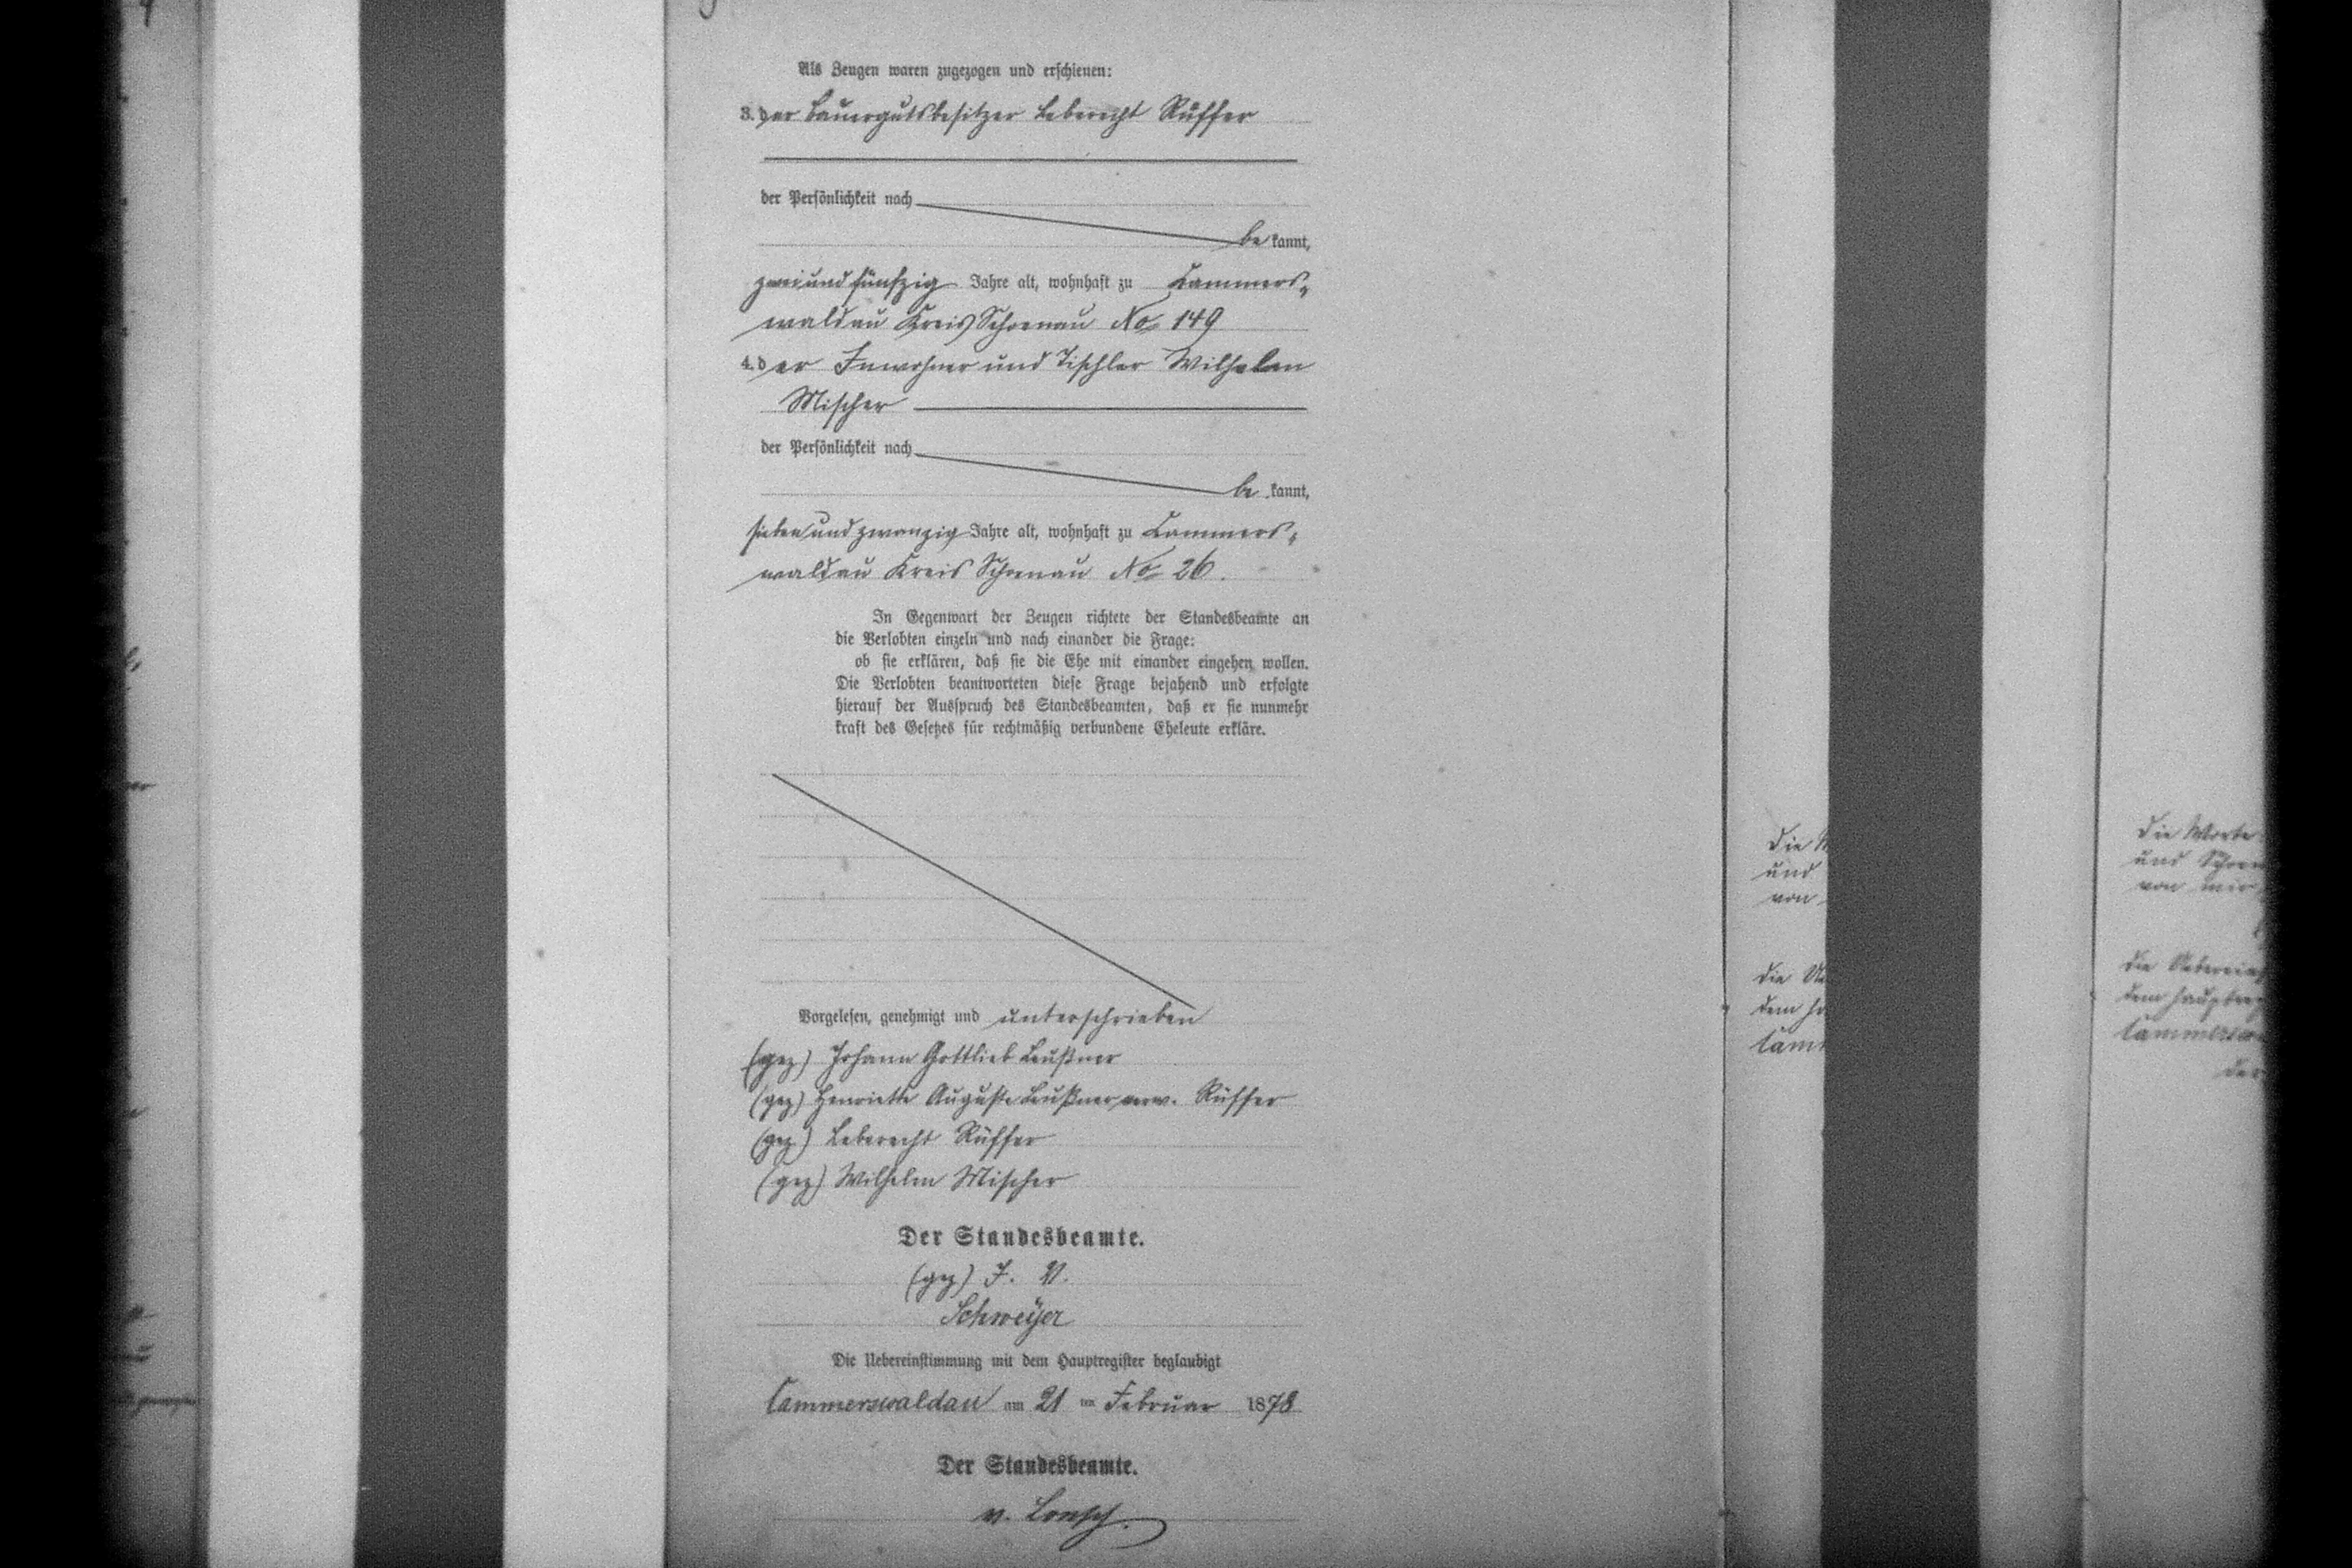 Als Zeugen waren zugezogen und erschienen:
3. der Bauergutsbesitzer Leberecht Rüffer
der Persönlichkeit nach
be kannt,
zwei und fünfzig Jahre alt, wohnhaft zu Cammers-
waldau Kreis Schoenau No 149
4. der Inwohner und Tischler Wilhelm
Mischer
der Persönlichkeit nach
be kannt,
sieben und zwanzig Jahre alt, wohnhaft zu Cammers-
waldau Kreis Schoenau No 26.
In Gegenwart der Zeugen richtete der Standesbeamte an
die Verlobten einzeln und nach einander die Frage:
ob sie erklären, daß sie die Ehe mit einander eingehen wollen.
Die Verlobten beantworteten diese Frage bejahend und erfolgte
hierauf der Ausspruch des Standesbeamten, daß er sie nunmehr
kraft des Gesetzes für rechtmäßig verbundene Eheleute erkläre.
Vorgelesen, genehmigt und unterschrieben
(gez) Johann Gottlieb Leußner
(gez) Henriette Auguste Leußner verw. Rüffer
(gez) Leberecht Rüffer
(gez) Wilhelm Mischer
Der Standesbeamte.
(gez) I. V.
Schweÿer
Die Uebereinstimmung mit dem Hauptregister beglaubigt
Cammerswaldau am 21 ten Februar 1878
Der Standesbeamte.
v.
die
und
von
die
dem
die Worte
und
von mir
die
dem